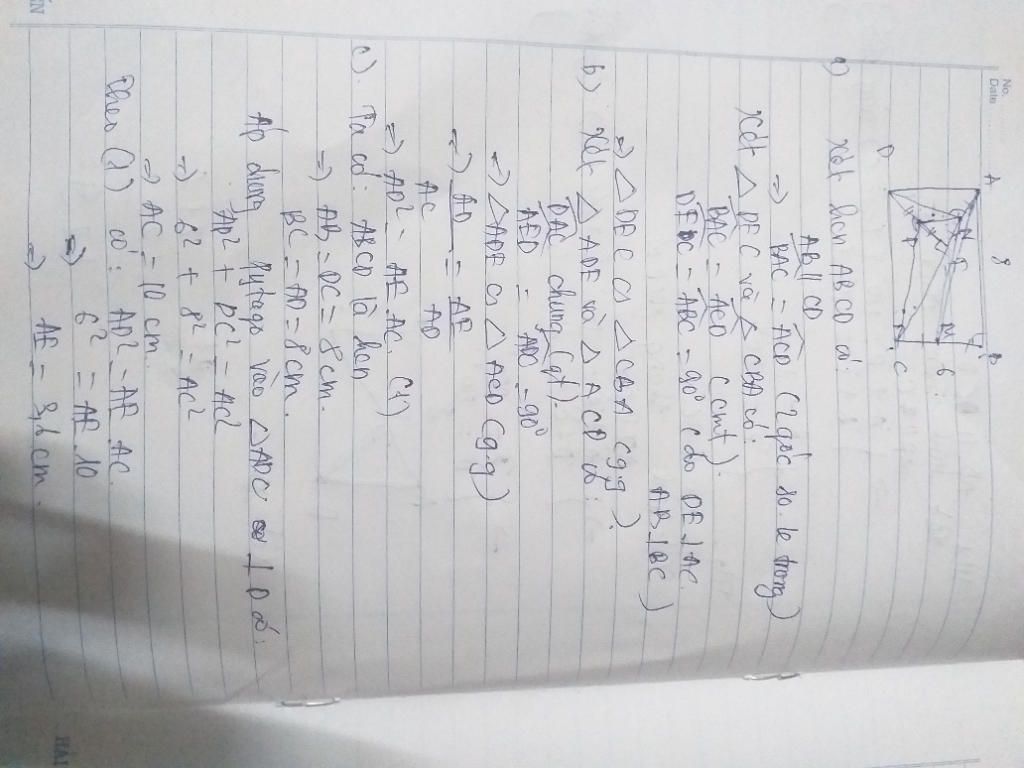 No.
Date
A
8
B
N
E
6
M
D
C
a) Xét hcn ABCD có:
AB // CD
=> BAC = ACD (2 góc so le trong)
Xét △ DEC và △ CBA có:
BAC = ACD (cmt).
DEC = ABC = 90° (do DE ⊥ AC.
AB ⊥ BC)
=> △ DEC ∽ △ CBA (g.g).
b) Xét △ ADE và △ ACD có:
DAC chung (gt).
AED = ADC = 90°
=> △ ADE ∽ △ ACD (g.g)
=> AD/AC = AE/AD
=> AD² = AE.AC. (1)
c). Ta có: ABCD là hcn
=> AB = DC = 8 cm.
BC = AD = 8cm.
Áp dụng Pytago vào △ ADC ⊥ D có:
AD² + DC² = AC²
=> 6² + 8² = AC²
=> AC = 10 cm.
Theo (1) có: AD² = AE.AC.
=> 6² = AE.10
=> AE = 3,6 cm.
HẢI